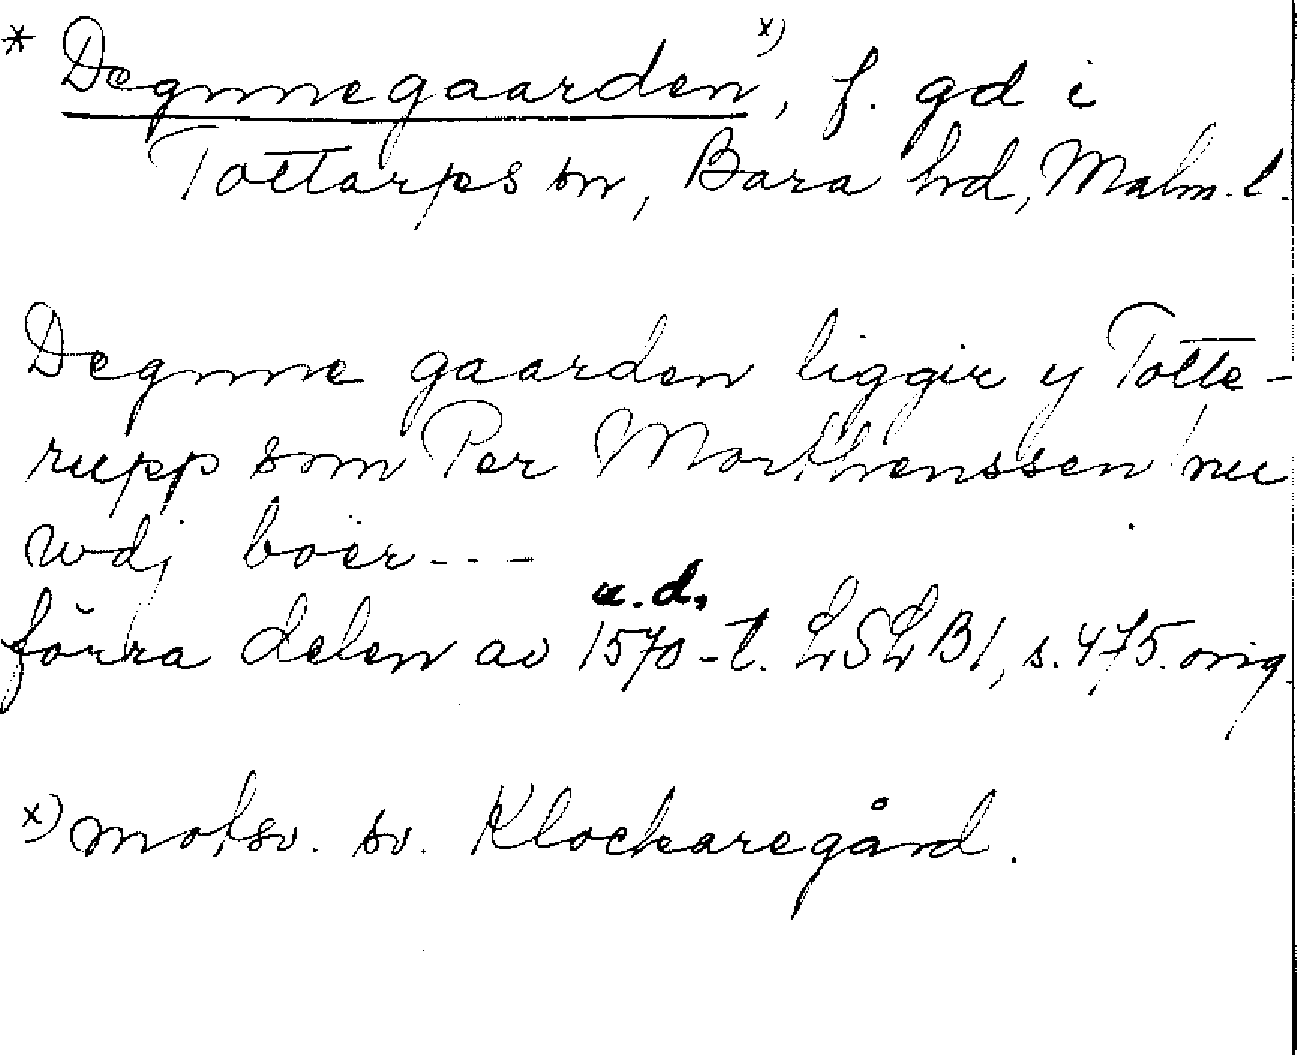 * Degnnegaarden x), f. gd i
Tottarps sn, Bara hd, Malm. l.
Degnne gaarden liggir y Totte-
rupp som Per Morthenssen nu
wdj boër---
u.d.
förra delen av 1570-t. LSLB1, s. 475. orig.
x) motsv. sv. Klockaregård.